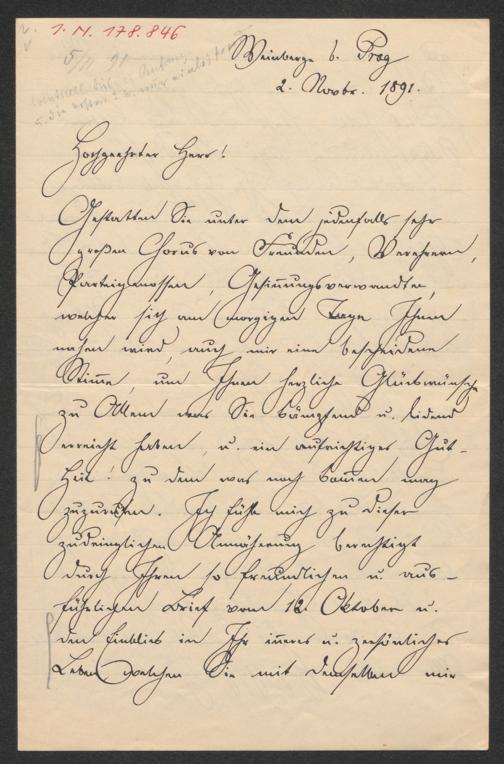 I. N. 178.846
5/11 91
Weinberge b. Prag
2. Novbr. 1891.
Hochgeehrter Herr!
Gestatten Sie unter dem jedenfalls sehr
großen Chorus von Freunden, Verehrern,
Parteigenossen, Gesinnungsverwandten,
welcher sich am morgigen Tage Ihnen
nahen wird, auch mir eine bescheidene
Stimme, um Ihnen herzliche Glückwünsche
zu Allem was Sie kämpfend u. leidend
erreicht haben, u. ein aufrichtiges Gut-
Heil! zu dem was noch kommen mag
zuzurufen. Ich fühle mich zu dieser
zudringlichen Annäherung berechtigt
durch Ihren so freundlichen u. aus-
führlichen Brief vom 12. Oktober u.
den Einblick in Ihr inneres u. persönliches
Leben, welchen Sie mit demselben mir